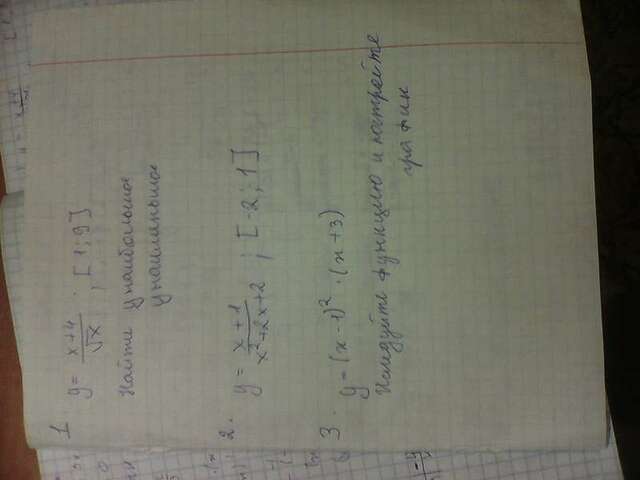 1
y = x+4/√x ; [1; 9]
Найти y наибольшое
y наименьшое
2. y = x+1/x²+2x+2 ; [-2; 1]
3. y = (x-1)² · (x+3)
функцию и постройте
график